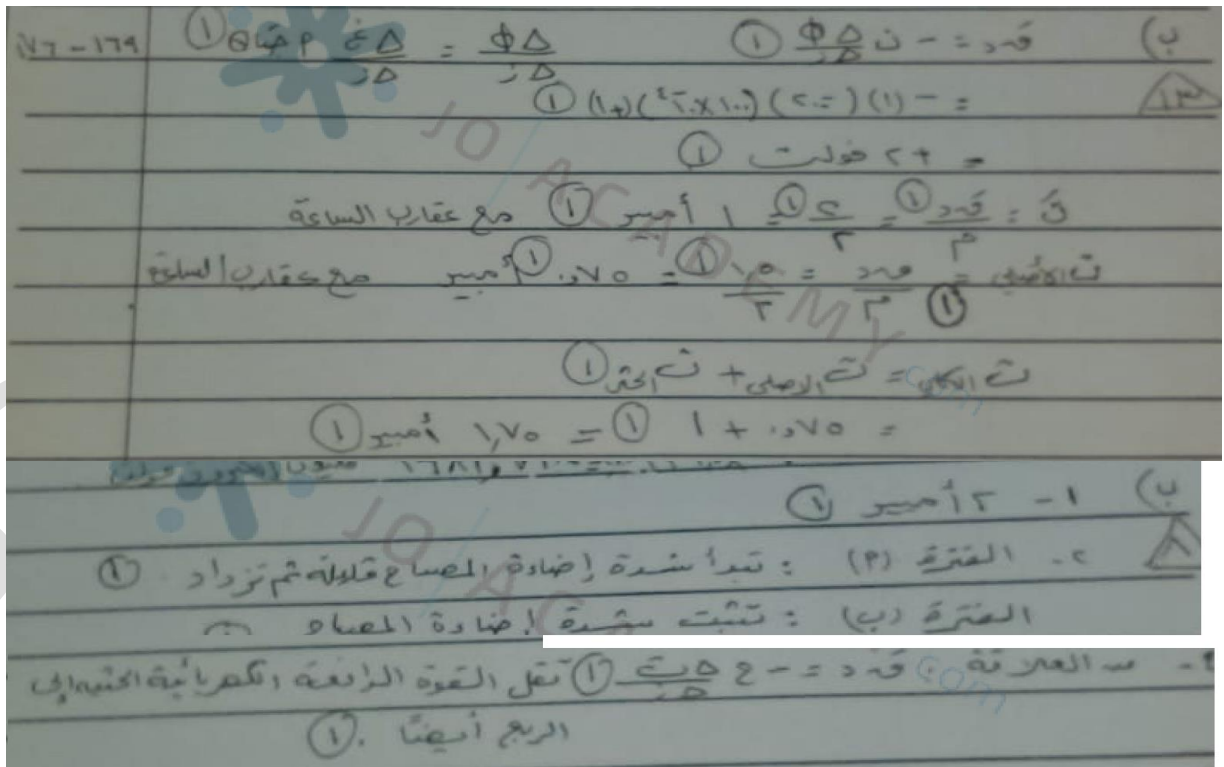 ب) قَد = - ن Δφ/Δز ① Δφ/Δز = Δغ/Δز أ جتاθ ① ١٦٩ - ١٧٦
١٣ = - (١) (-٢٠٠) (١٠٠×١٠^-٤) (+١) ①
= +٢ فولت ①
تَ = قَد/م ① = ٢/٢ ① = ١ أمبير ① مع عقارب الساعة
ت الأصلي = قد/م ① = ١,٥/٢ ① = ٠,٧٥ أمبير ① مع عقارب الساعة
ت الكلي = ت الأصلي + ت الحثي ①
= ٠,٧٥ + ١ ① = ١,٧٥ أمبير ①
ب) ١- ٢ أمبير ①
٨ ٢- الفترة (أ) : تبدأ شدة إضاءة المصباح قليلة ثم تزداد ①
الفترة (ب) : تثبت شدة إضاءة المصباح
٣- من العلاقة قَد = - ح Δت/Δز ① تقل القوة الدافعة الكهربائية الحثية إلى
الربع أيضًا . ①
JO ACADEMY.com
JO AC
.com